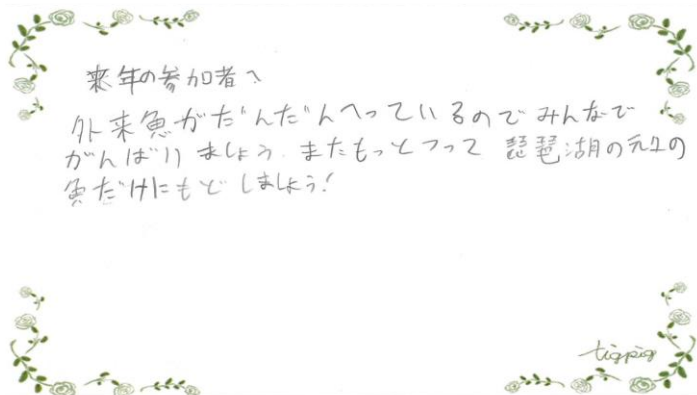 来年の参加者へ
外来魚がだんだんへっているのでみんなで
がんばりましょう。またもっとつって琵琶湖の元の
魚だけにもどしましょう!
tigpig